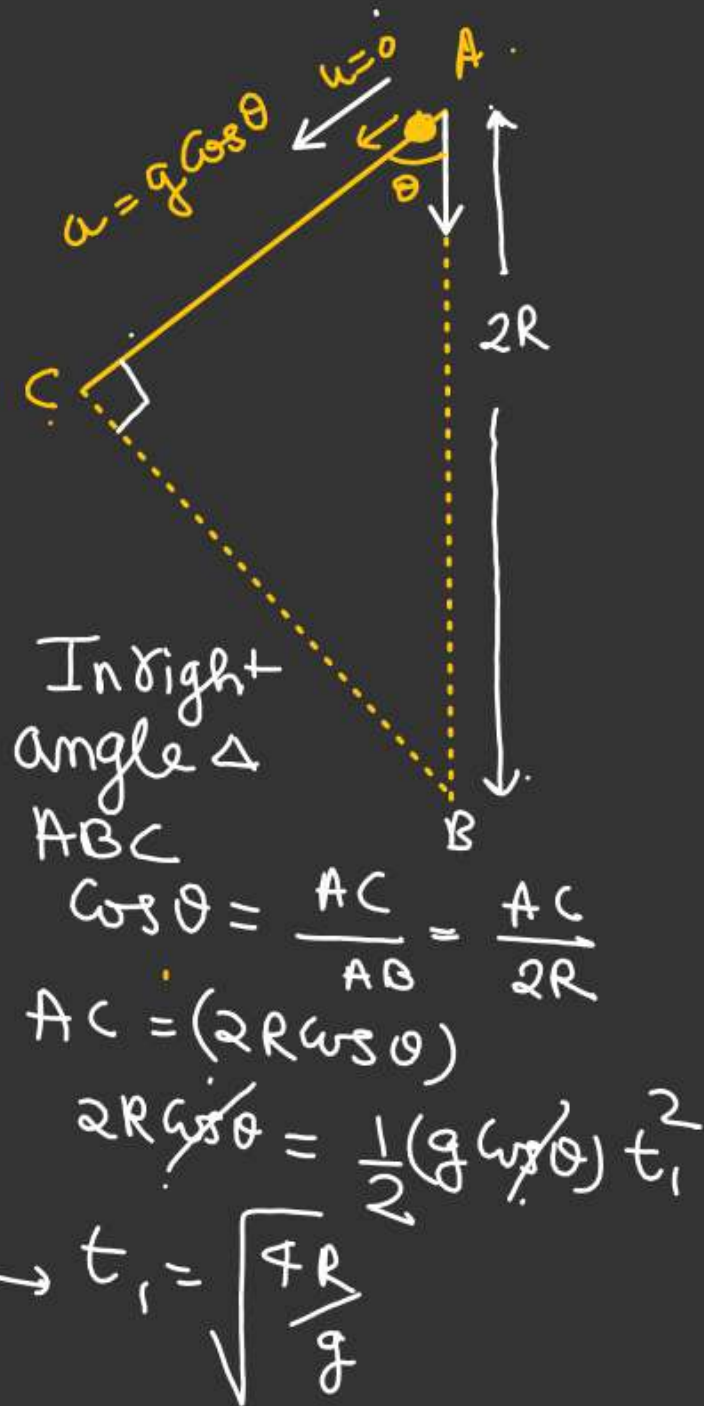 u=0 A
a = g cosθ
θ
2R
C
In right
angle Δ
ABC
B
Cosθ = AC/AB = AC/2R
AC = (2R cosθ)
2R cosθ = 1/2 (g cosθ) t₁²
→ t₁ = √(4R/g)